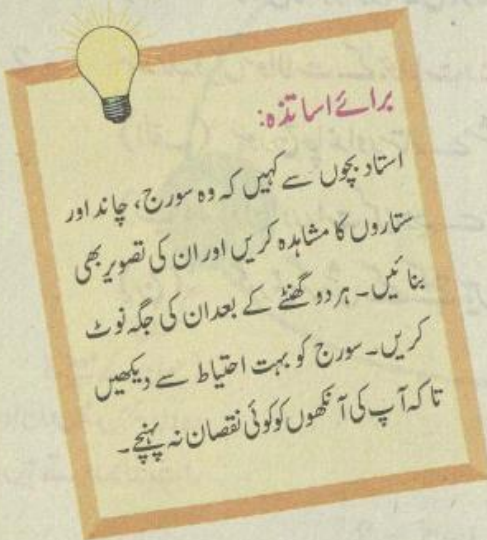 برائے اساتذہ:
استاد بچوں سے کہیں کہ وہ سورج، چاند اور
ستاروں کا مشاہدہ کریں اور ان کی تصویر بھی
بنائیں۔ ہر دو گھنٹے کے بعد ان کی جگہ نوٹ
کریں۔ سورج کو بہت احتیاط سے دیکھیں
تاکہ آپ کی آنکھوں کو کوئی نقصان نہ پہنچے۔